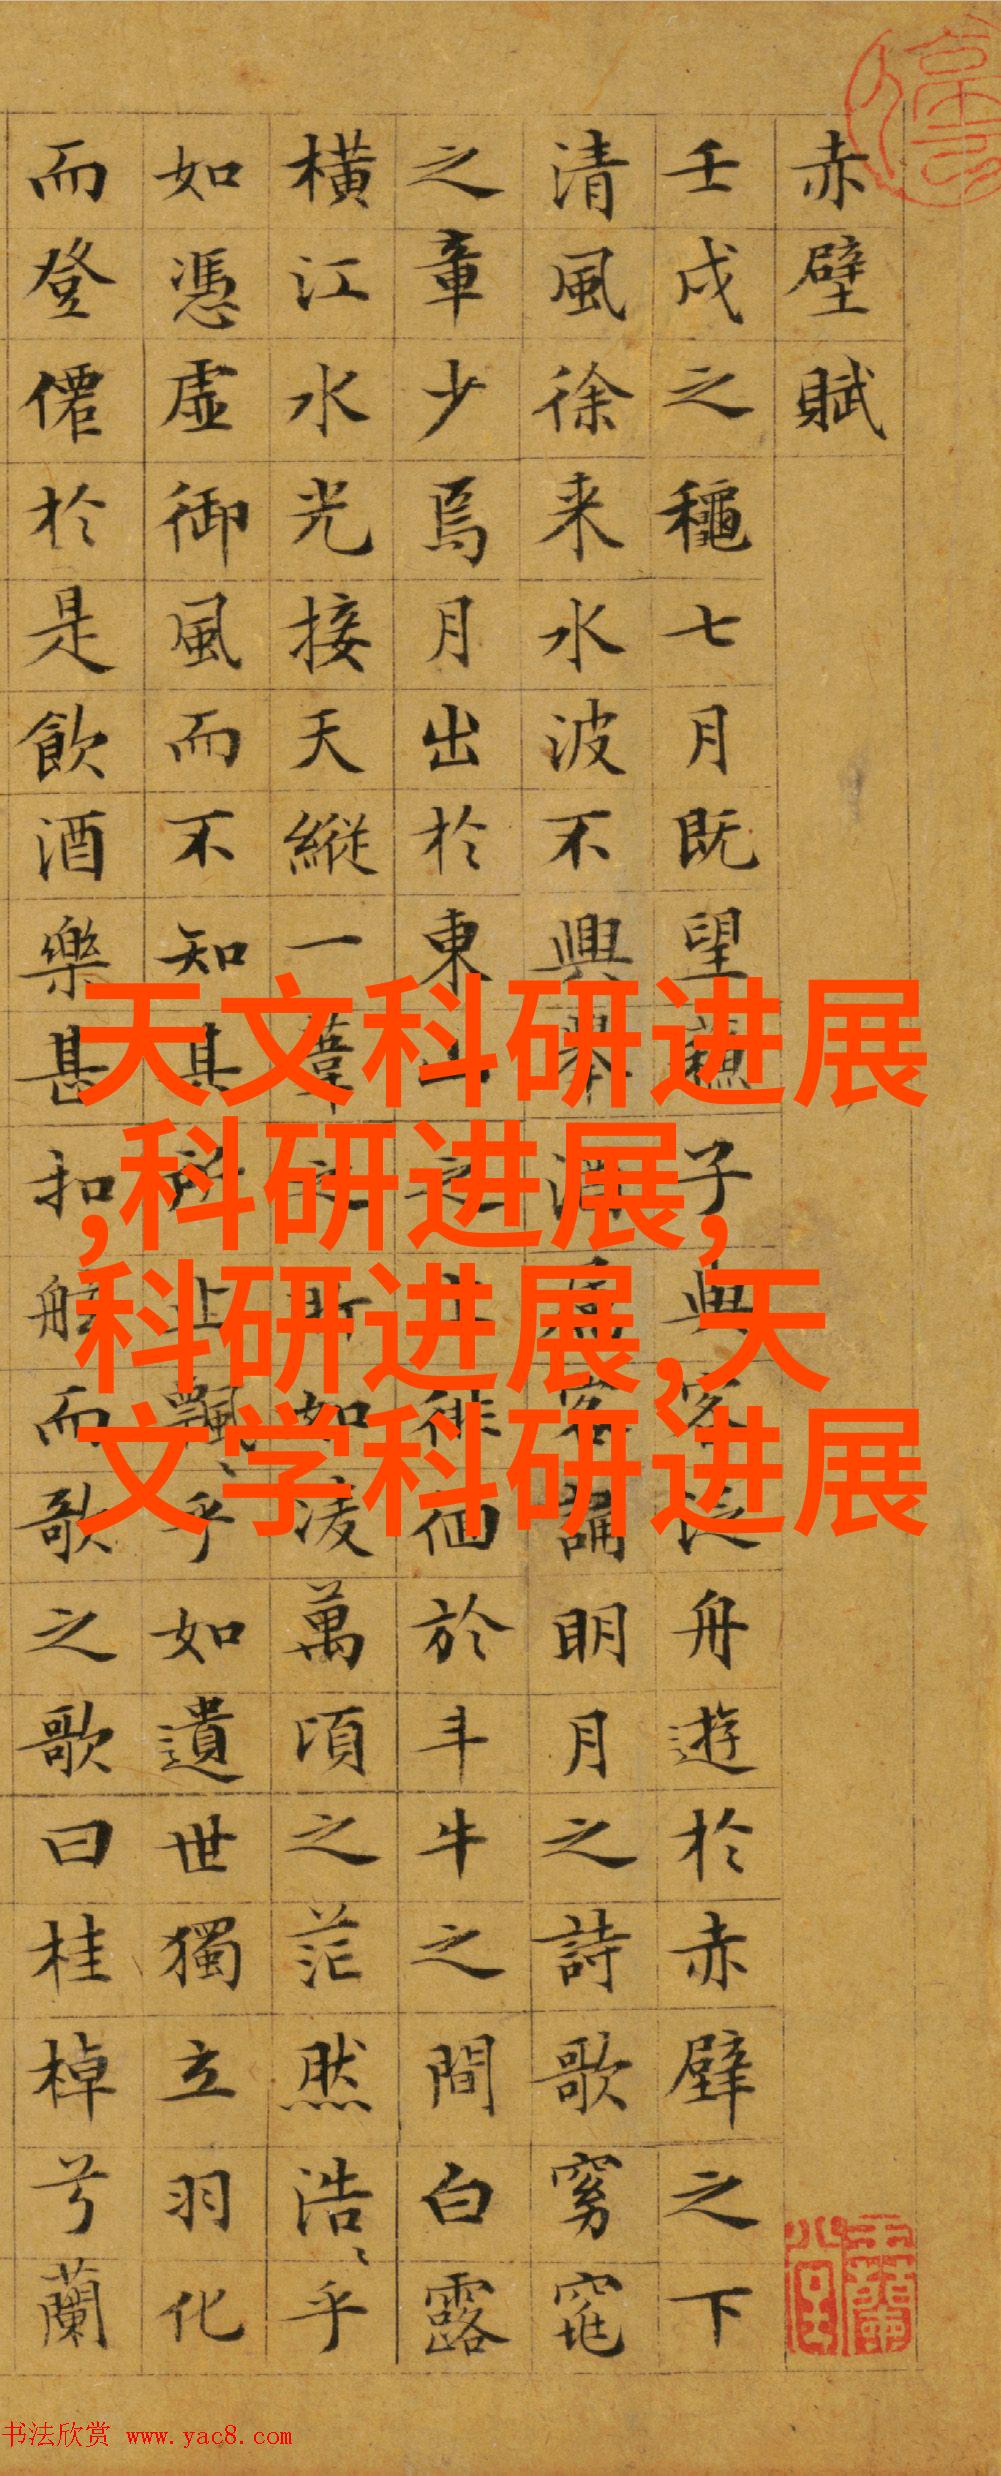 赤壁賦
壬戌之穐七月既望蘇子與客泛舟遊於赤壁之下
清風徐来水波不興舉酒属客誦明月之詩歌窈窕
之章少焉月出於東山之上徘徊於斗牛之間白露
橫江水光接天縱一葦之所如凌萬頃之茫然浩〻乎
如憑虛御風而不知其所止飄〻乎如遺世獨立羽化
而登僊於是飲酒樂甚扣舷而歌之歌曰桂棹兮蘭
天文科研进展
,科研进展,
科研进展,天
文学科研进展
书法欣赏 www.yac8.com